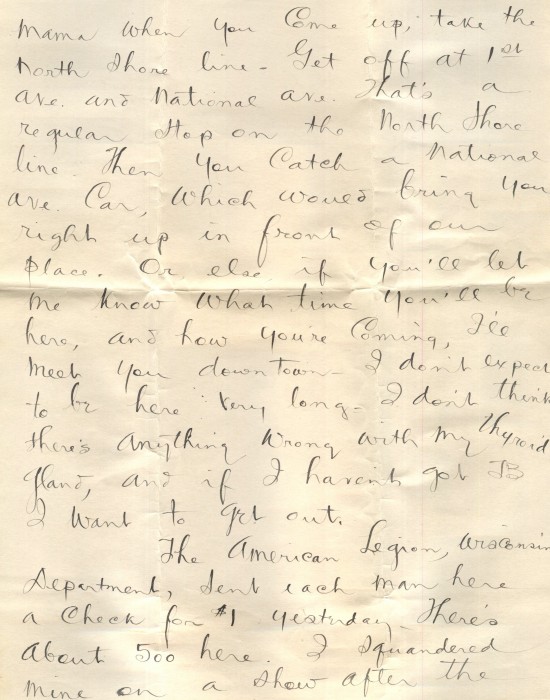 Mama when you come up, take the
North Shore line - Get off at 1st
Ave. and National ave. That's a
regular stop on the North Shore
line. Then you catch a National
ave. Car, which would bring you
right up in front of our
place. Or else if you'll let
me know what time you'll be
here, and how you're coming, I'll
meet you down town - I don't expect
to be here very long - I don't think
there's anything wrong with my thyroid
gland, and if I haven't got TB
I want to get out.
The American Legion, Wisconsin
Department, sent each man here
a check for $1 yesterday. There's
about 500 here. I squandered
mine on a show after the